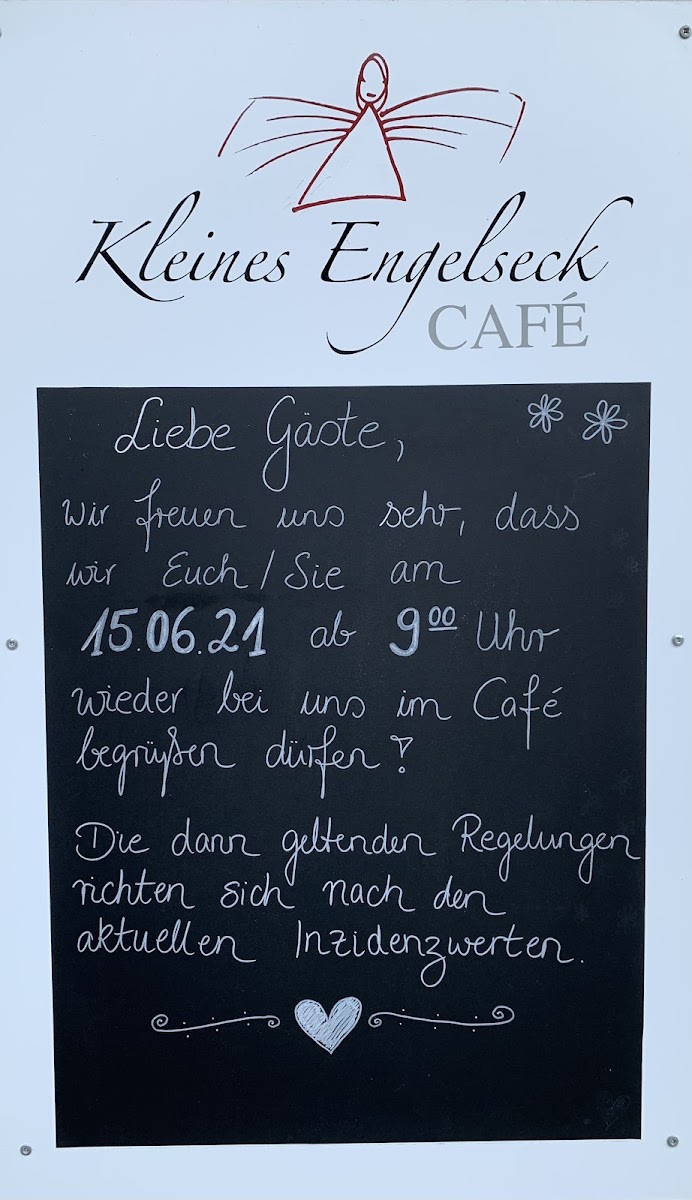 Kleines Engelseck
CAFÉ
Liebe Gäste,
wir freuen uns sehr, dass
wir Euch / Sie am
15.06.21 ab 9⁰⁰ Uhr
wieder bei uns im Café
begrüßen dürfen!
Die dann geltenden Regelungen
richten sich nach den
aktuellen Inzidenzwerten.